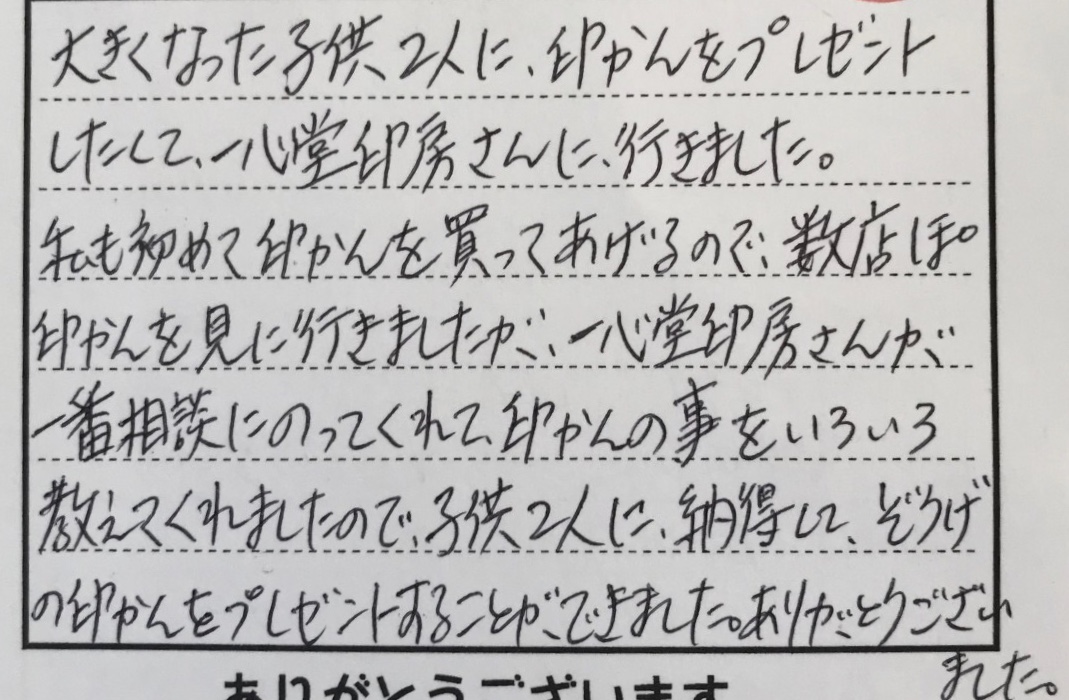 大きくなった子供2人に、印かんをプレゼント
したくて、一心堂印房さんに、行きました。
私も初めて印かんを買ってあげるので、数店ほど
印かんを見に行きましたが、一心堂印房さんが
一番相談にのってくれて、印かんの事をいろいろ
教えてくれましたので、子供2人に、納得して、ぞうげ
の印かんをプレゼントすることができました。ありがとうござい
ました。
ありがとうございます